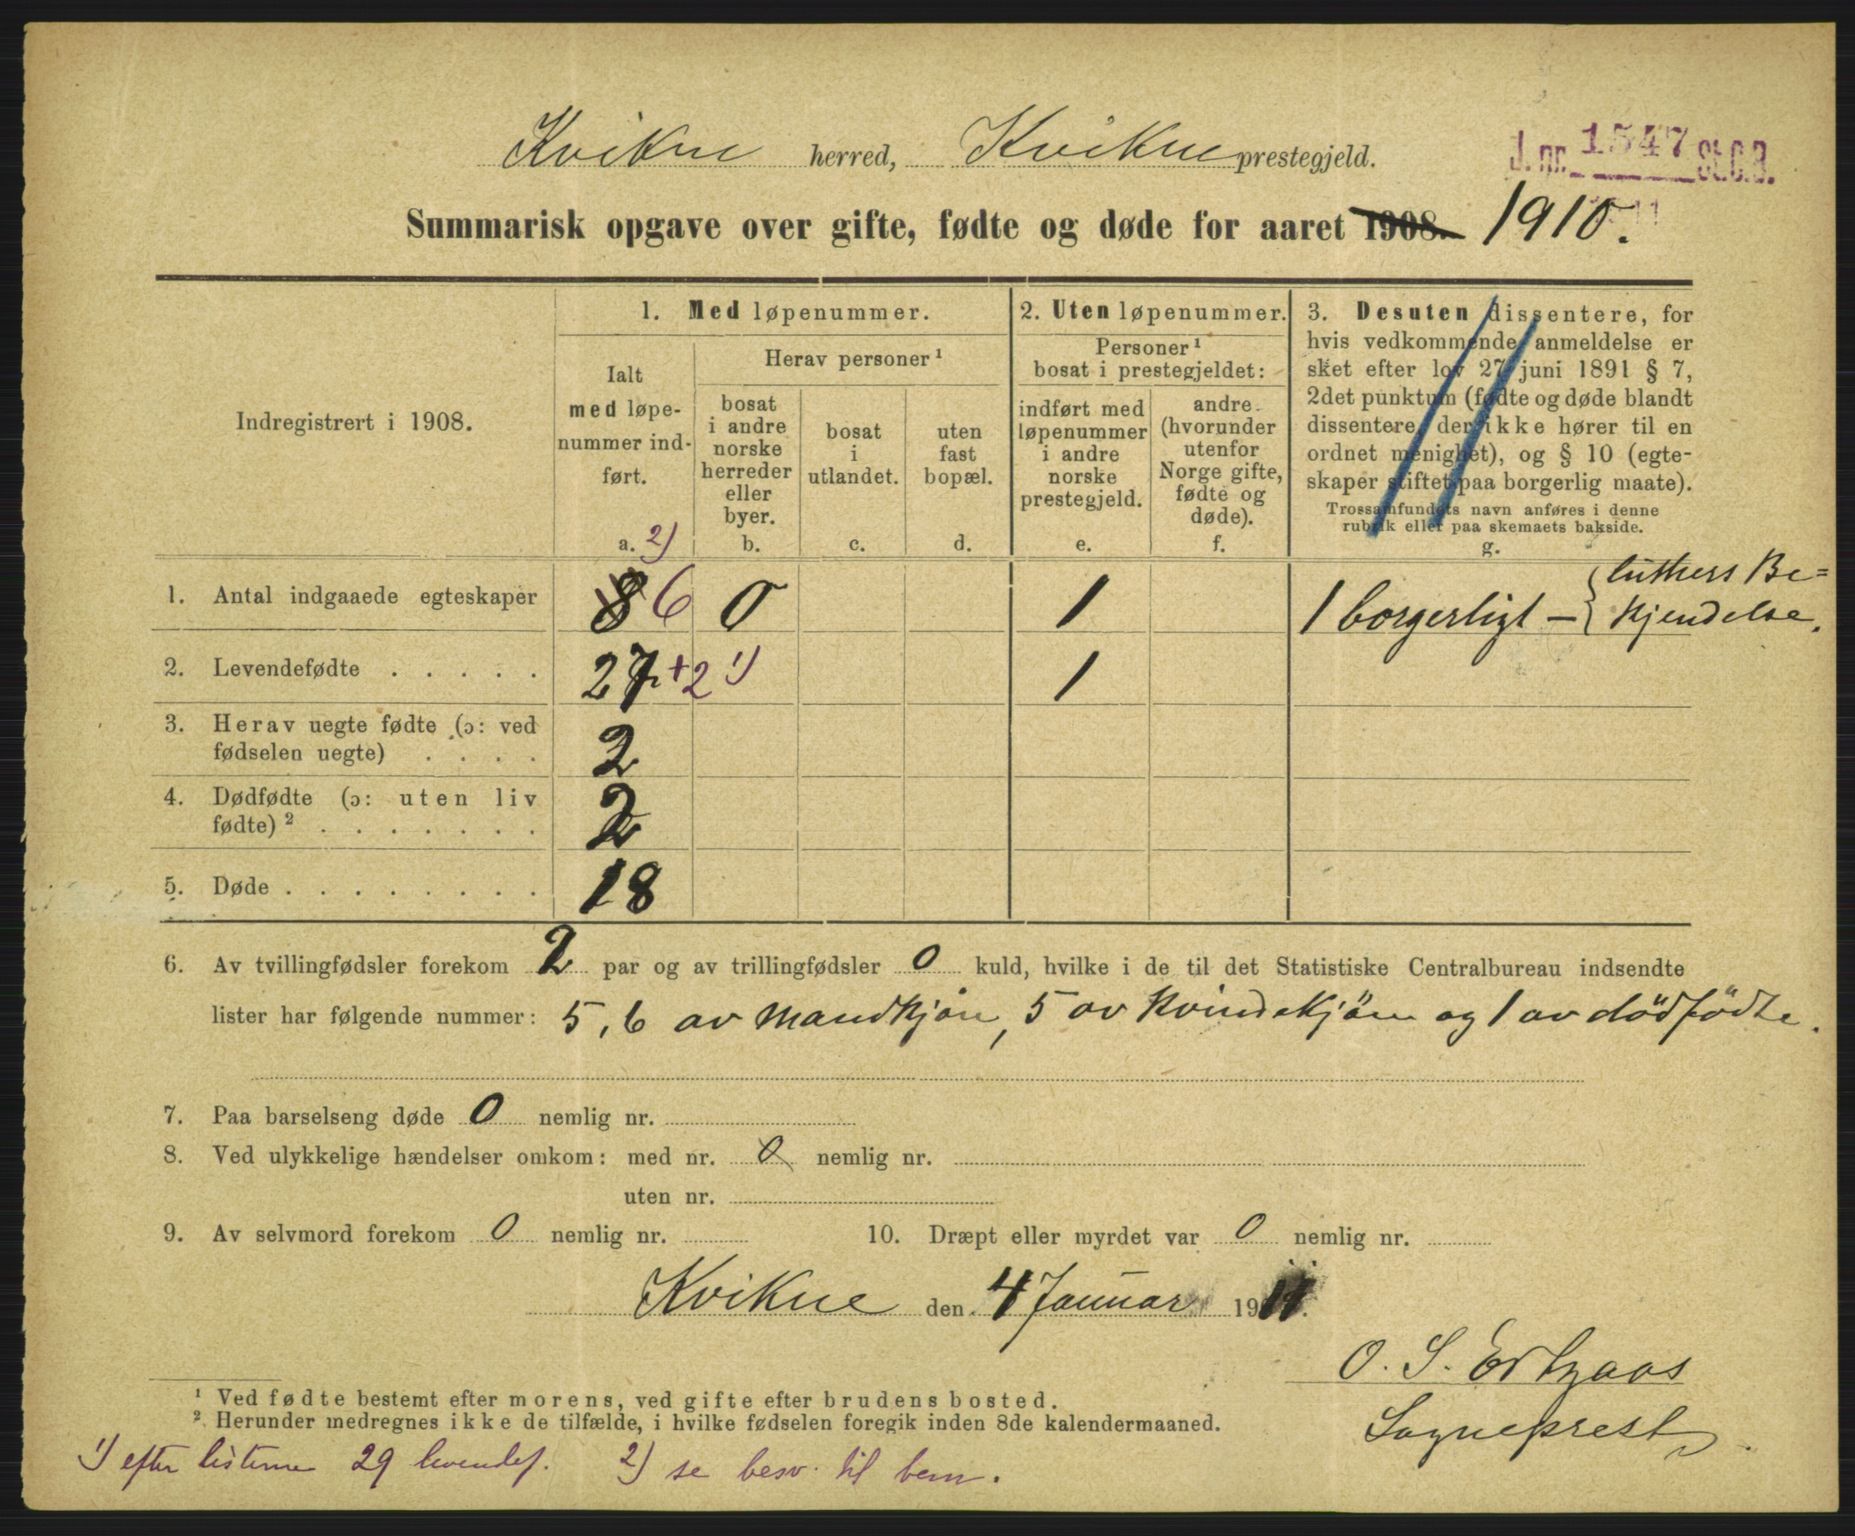 Kvikne herred, Kvikne prestegjeld.
J. nr. 1547 St.C.B.
Summarisk opgave over gifte, fødte og døde for aaret 1908. 1910.
Indregistrert i 1908.
1. Med løpenummer.
Ialt
med løpe-
nummer ind-
ført.
a. 2)
Herav personer ¹
bosat
i andre
norske
herreder
eller
byer.
b.
bosat
i
utlandet.
c.
uten
fast
bopæl.
d.
2. Uten løpenummer.
Personer ¹
bosat i prestegjeldet:
indført med
løpenummer
i andre
norske
prestegjeld.
e.
andre
(hvorunder
utenfor
Norge gifte,
fødte og
døde).
f.
3. Desuten dissentere, for
hvis vedkommende anmeldelse er
sket efter lov 27 juni 1891 § 7,
2det punktum (fødte og døde blandt
dissentere, der ikke hører til en
ordnet menighet), og § 10 (egte-
skaper stiftet paa borgerlig maate).
Trossamfundets navn anføres i denne
rubrik eller paa skemaets bakside.
g.
1. Antal indgaaede egteskaper 8 6 0 1 1 borgerligt – { luthers Be=
kjendelse.
2. Levendefødte . . . . . 27 +2 1) 1
3. Herav uegte fødte (ɔ: ved
fødselen uegte) . . . . 2
4. Dødfødte (ɔ: uten liv
fødte) ² . . . . . . . 2
5. Døde . . . . . . . . 18
6. Av tvillingfødsler forekom 2 par og av trillingfødsler 0 kuld, hvilke i de til det Statistiske Centralbureau indsendte
lister har følgende nummer: 5, 6 av Mandkjön, 5 av Kvindekjön og 1 av dödfödte.
7. Paa barselseng døde 0 nemlig nr.
8. Ved ulykkelige hændelser omkom: med nr. 0 nemlig nr.
uten nr.
9. Av selvmord forekom 0 nemlig nr.
10. Dræpt eller myrdet var 0 nemlig nr.
Kvikne den 4 Januar 1911.
O. S.
Sogneprest.
¹ Ved fødte bestemt efter morens, ved gifte efter brudens bosted.
² Herunder medregnes ikke de tilfælde, i hvilke fødselen foregik inden 8de kalendermaaned.
1) efter listerne 29 levendef. 2) se besv. til bem.